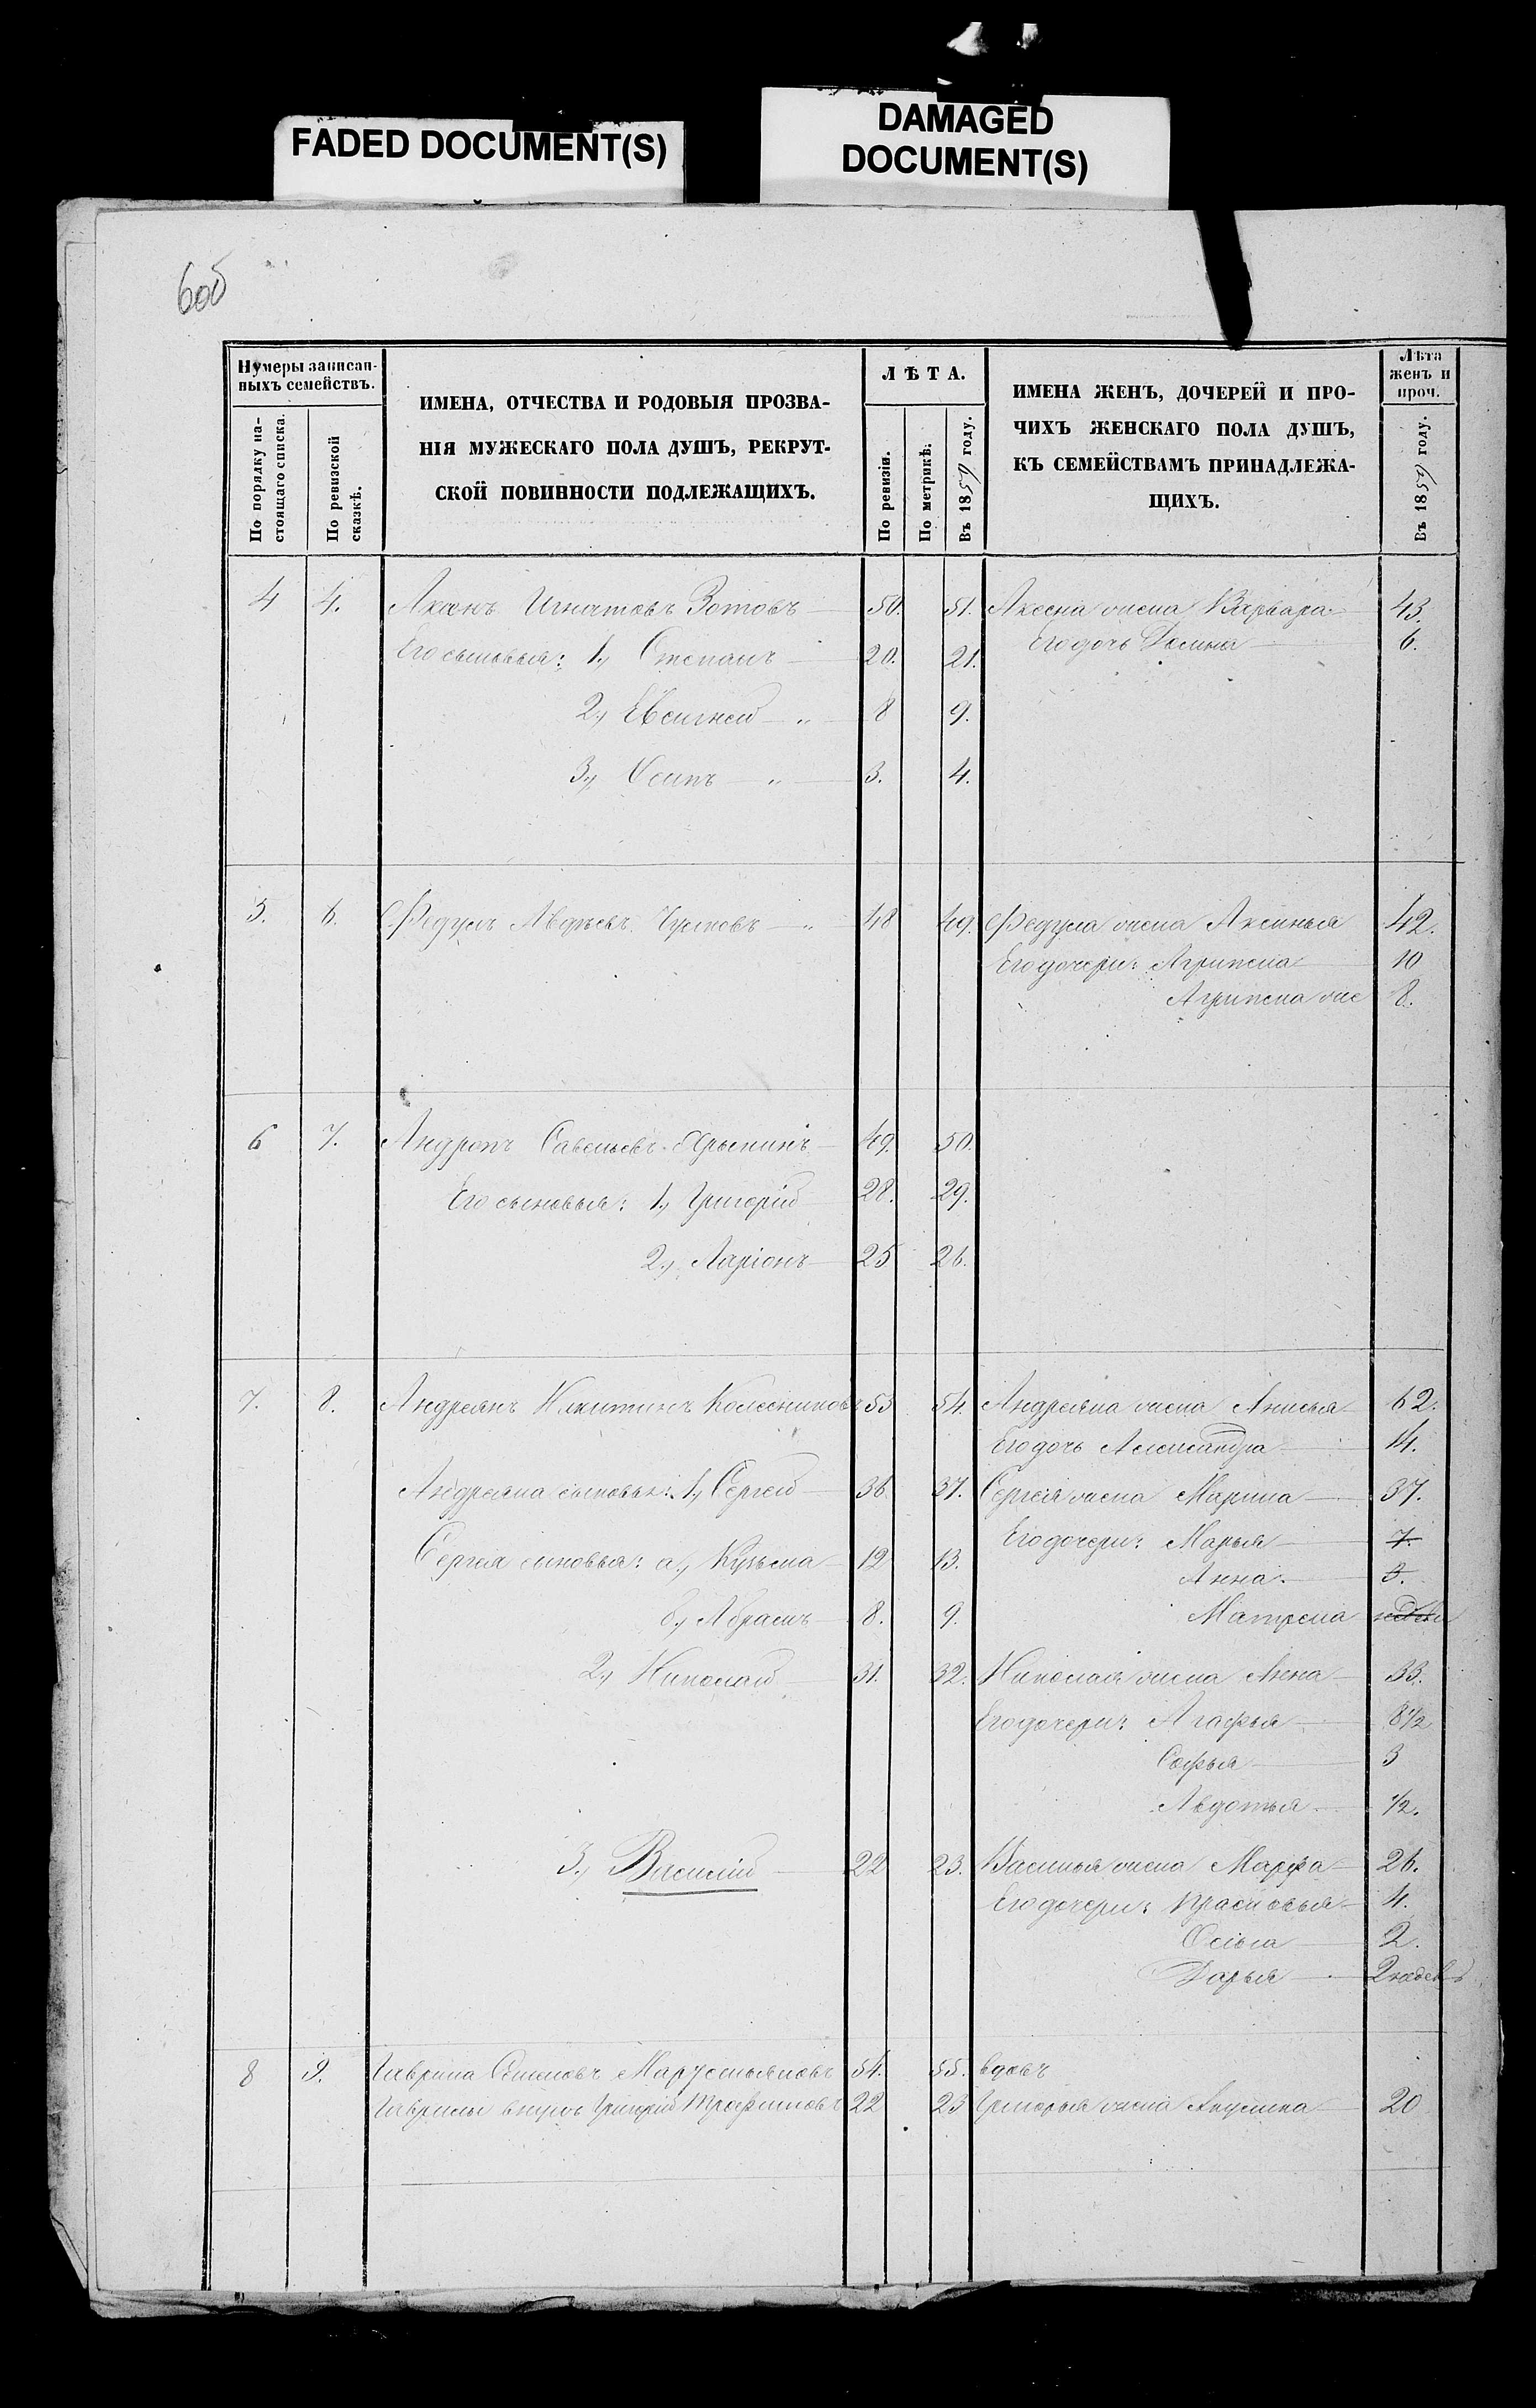 FADED DOCUMENT(S)
DAMAGED
DOCUMENT(S)
6об
Нумеры записан-
ныхъ семействъ.
По порядку на-
стоящаго списка.
По ревизской
сказкѣ.
ИМЕНА, ОТЧЕСТВА И РОДОВЫЯ ПРОЗВА-
НІЯ МУЖЕСКАГО ПОЛА ДУШЪ, РЕКРУТ-
СКОЙ ПОВИННОСТИ ПОДЛЕЖАЩИХЪ.
ЛѢТА.
По ревизіи.
По метрикѣ.
Въ 1859 году.
ИМЕНА ЖЕНЪ, ДОЧЕРЕЙ И ПРО-
ЧИХЪ ЖЕНСКАГО ПОЛА ДУШЪ,
КЪ СЕМЕЙСТВАМЪ ПРИНАДЛЕЖА-
ЩИХЪ.
Лѣта
женъ и
проч.
Въ 1859 году.
4 4. Аксенъ Игнатовъ Зотовъ 50. 51. Аксена жена Варвара 43.
Его сыновья: 1, Степанъ 20. 21. Его дочь 6.
2, Евсигней 8 9.
3, Осипъ 3. 4.
5. 6. Федулъ Авдѣевъ 48 49. Федула жена Аксинья 42.
Его дочери: Агрипена 10
Агрипена же 8.
6 7. Андронъ Савельевъ 49. 50.
Его сыновья: 1, Григорій 28. 29.
2, Ларіонъ 25 26.
7. 8. Андреянъ Никитинъ Колесниковъ 53 54. Андреяна жена Анисья 62.
Его дочь Александра 14.
Андреяна сыновья: 1, Сергей 36 37. Сергея жена Марина 37.
Его дочери: Марья 7.
Сергея сыновья: а, Кузьма 12 13.
Анна 3.
б, Абрамъ 8. 9. Матрена
2, Николай 31. 32. Николая жена Анна 33.
Его дочери: Агафья 8½
Софья 3
Авдотья ½.
3, Василій 22 23. Василья жена Марфа 26.
Его дочери: Прасковья 4.
2.
Дарья 2 недель
8 9. Гаврила Семеновъ 54. 55. вдовъ
Гаврилы внукъ Григорій Трофимовъ 22 23 Григорья жена Акулина 20